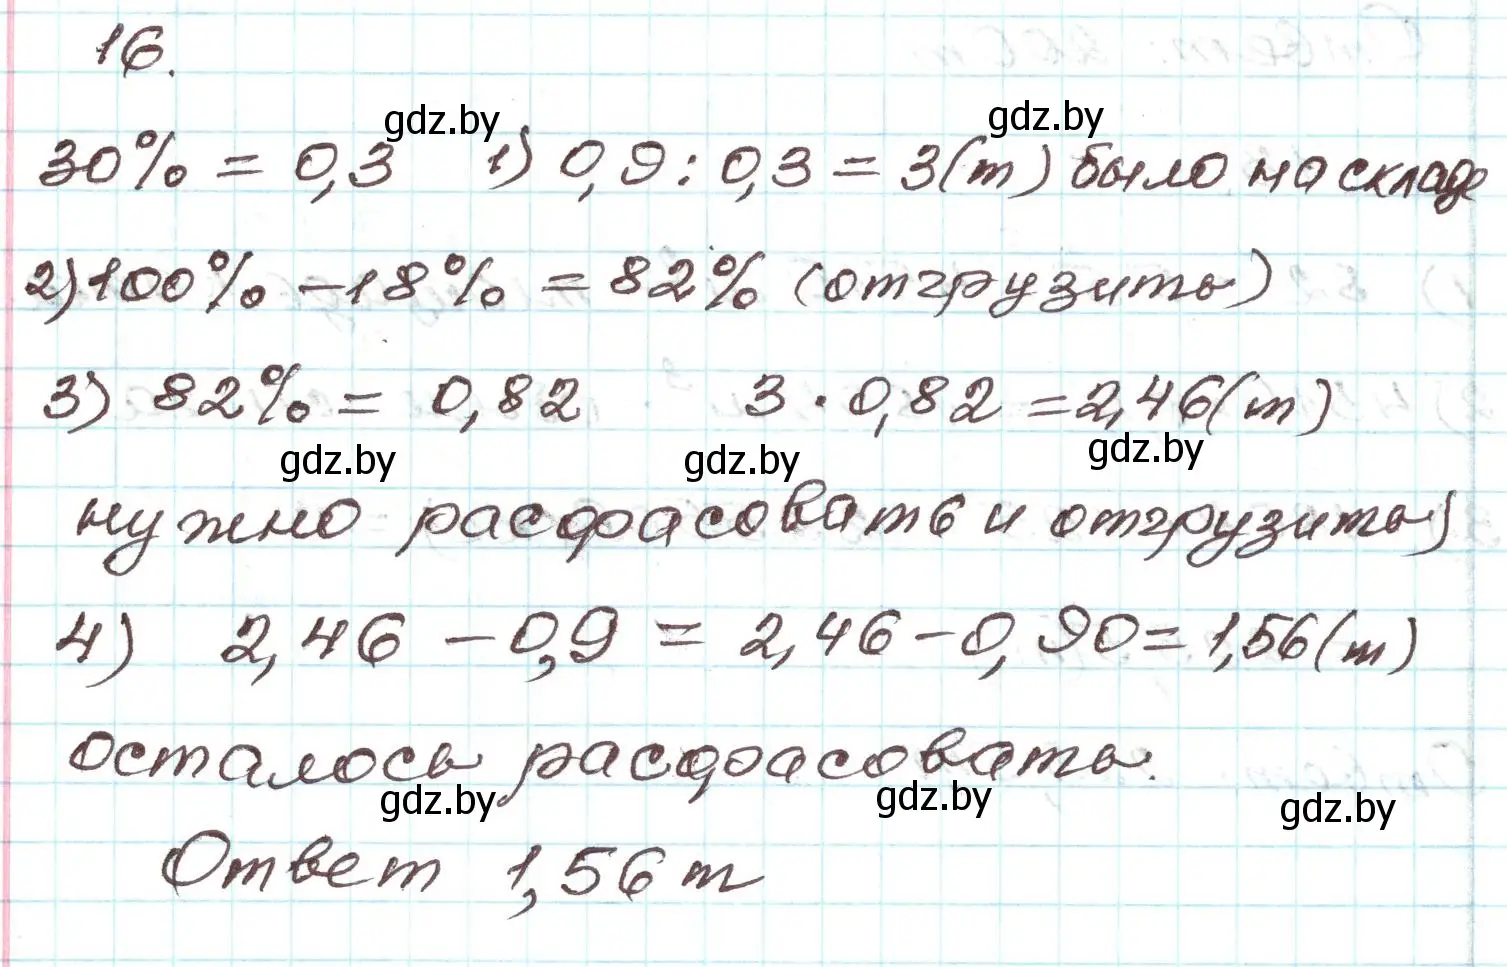 16.
gdz.by gdz.by
30% = 0,3 1) 0,9 : 0,3 = 3(т) было на складе
2) 100% - 18% = 82% (отгрузить)
3) 82% = 0,82 3 · 0,82 = 2,46(т)
gdz.by gdz.by gdz.by
нужно расфасовать и отгрузить)
4) 2,46 - 0,9 = 2,46 - 0,90 = 1,56(т)
осталось расфасовать.
gdz.by gdz.by gdz.by
Ответ 1,56 т